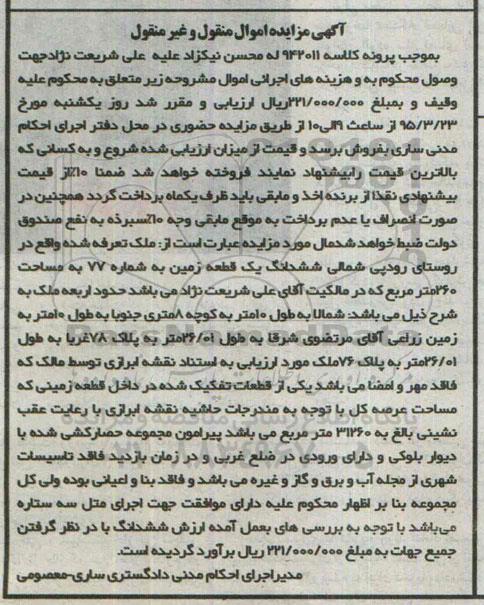 آگهی مزایده اموال منقول و غیر منقول
بموجب پرونه کلاسه ۹۴۲۰۱۱ له محسن نیکزاد علیه علی شریعت نژادجهت
وصول محکوم به و هزینه های اجرائی اموال مشروحه زیر متعلق به محکوم علیه
وقیف و بمبلغ ۲۲۱/۰۰۰/۰۰۰ریال ارزیابی و مقرر شد روز یکشنبه مورخ
۹۵/۳/۲۳ از ساعت ۹الی۱۰ از طریق مزایده حضوری در محل دفتر اجرای احکام
مدنی ساری بفروش برسد و قیمت از میزان ارزیابی شده شروع و به کسانی که
بالاترین قیمت رابیشنهاد نمایند فروخته خواهد شد ضمنا ۱۰٪از قیمت
بیشنهادی نقدا از برنده اخذ و مابقی باید ظرف یکماه برداخت گردد همچنین در
صورت انصراف یا عدم برداخت به موقع مابقی وجه ۱۰٪سبرذه به نفع صندوق
دولت ضبط خواهد شدمال مورد مزایده عبارت است از: ملک تعرفه شده واقع در
روستای رودپی شمالی ششدانگ یک قطعه زمین به شماره ۷۷ به مساحت
۲۶۰متر مربع که در مالکیت آقای علی شریعت نژاد می باشد حدود اربعه ملک به
شرح ذیل می باشد: شمالا به طول ۱۰متر به کوچه ۸متری جنوبا به طول ۱۰متر به
زمین زراعی آقای مرتضوی شرقا به طول ۲۶/۰۱متر به پلاک ۷۸غربا به طول
۲۶/۰۱متر به پلاک ۷۶ملک مورد ارزیابی به استناد نقشه ابرازی توسط مالک که
فاقد مهر و امضا می باشد یکی از قطعات تفکیک شده در داخل قطعه زمینی که
مساحت عرصه کل با توجه به مندرجات حاشیه نقشه ابرازی با رعایت عقب
نشینی بالغ به ۳۱۲۶۰ متر مربع می باشد پیرامون مجموعه حصارکشی شده با
دیوار بلوکی و دارای ورودی در ضلع غربی و در زمان بازدید فاقد تاسیسات
شهری از مجله آب و برق و گاز و غیره می باشد و فاقد بنا و اعیانی بوده ولی کل
مجموعه بنا بر اظهار محکوم علیه دارای موافقت جهت اجرای متل سه ستاره
می‌باشد با توجه به بررسی های بعمل آمده ارزش ششدانگ با در نظر گرفتن
جمیع جهات به مبلغ ۲۲۱/۰۰۰/۰۰۰ ریال برآورد گردیده است.
مدیراجرای احکام مدنی دادگستری ساری-معصومی